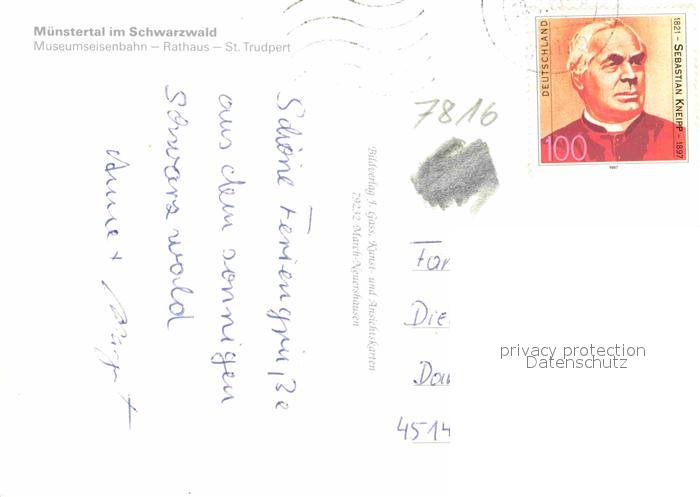 Münstertal im Schwarzwald
Museumseisenbahn – Rathaus – St. Trudpert
DEUTSCHLAND
100
1821 – SEBASTIAN KNEIPP – 1897
1997
7816
Schöne Feriengrüße
aus dem sonnigen
Schwarzwald
Anne +
Bildverlag J. Gass, Kunst- und Ansichtskarten
79232 March-Neuershausen
Die
4514
privacy protection
Datenschutz